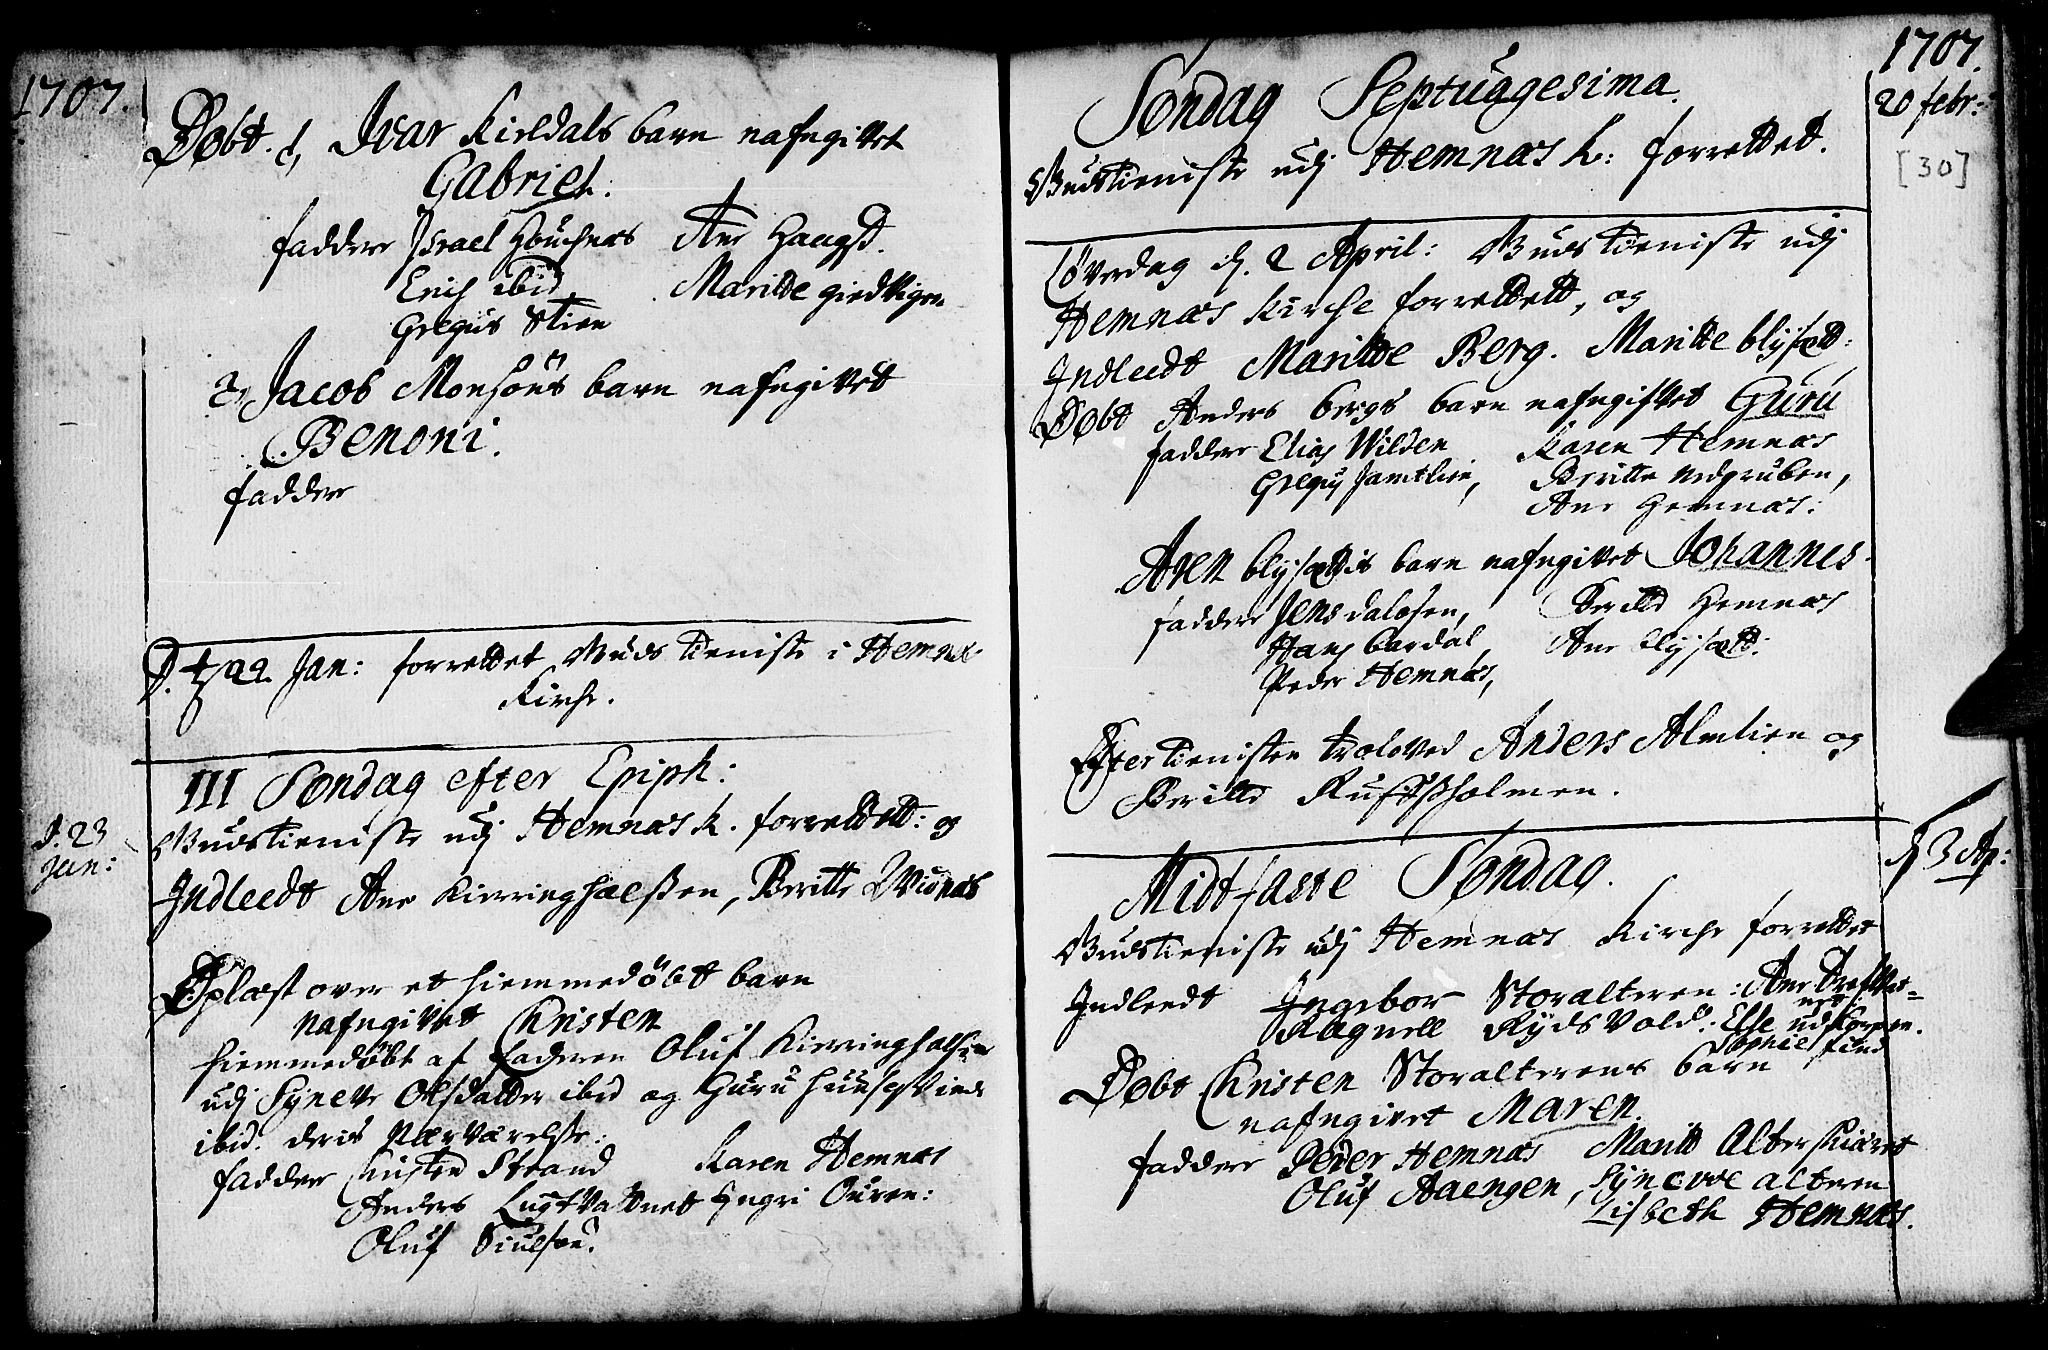 1707.
Døbt. 1, Ivar Kieldals barn nafngivet
Gabriel.
faddere Israel Houchnæs Ane Haagst.
Erich ibid. Maritte giedvigen
Gregus Stien
2, Jacob Monsöns barn nafngivet
Benoni.
faddere
D. 22 Jan: forrettet Guds tieniste i Hemnæs
Kirche.
III Søndag efter Epiph:
d. 23
Jan:
Gudstieniste udj Hemnæs K. forrettet: og
Indleedt Ane Kierringhalsen, Beritte
Oplæst over et hiemmedöbt barn
nafngivet Christen
hiemmedöbt af faderen Oluf Kierringhalsen
udj Synetve Olsdatter ibid og Guru
ibid. deris nærværelse:
faddere Christen Strand Karen Hemnæs
Anders Lugtvattnet Yngri Ouren:
Oluf
1707.
20 febr:
[30]
Søndag Septuagesima.
Gudstieniste udj Hemnæs K: forrettet.
Löverdag d. 2 April: Guds tieniste udj
Hemnæs Kirche forrettett, og
Indleedt Maritte Berg. Maritte blysætt:
Döbt Anders bergs barn nafngifvet Guru
faddere Elias Wilden Karen Hemnæs
Gregus Jamtlien, Beritte nedgruben,
Ane Hemnæs:
Aren blysættis barn nafngivet Johannes.
faddere Jens dalosen, Beritte Hemnæs
Hans bardal, Ane blysætt:
Peder Hemnæs,
Efter tienisten troloved Anders Almlien og
Beritte
d. 3 Ap:
Midtfaste Søndag.
Gudstieniste udj Hemnæs Kirche forrettet
Indleedt Ingebor Storalteren: Ane
Ragnell Rydsvold: Else
Sophie find
Døbt Christen Storalterens barn
nafngivet Maren.
faddere Peder Hemnæs Maritt Alterskiæret
Oluf Aaengen, Synove alteren
Lisbeth Hemnæs.